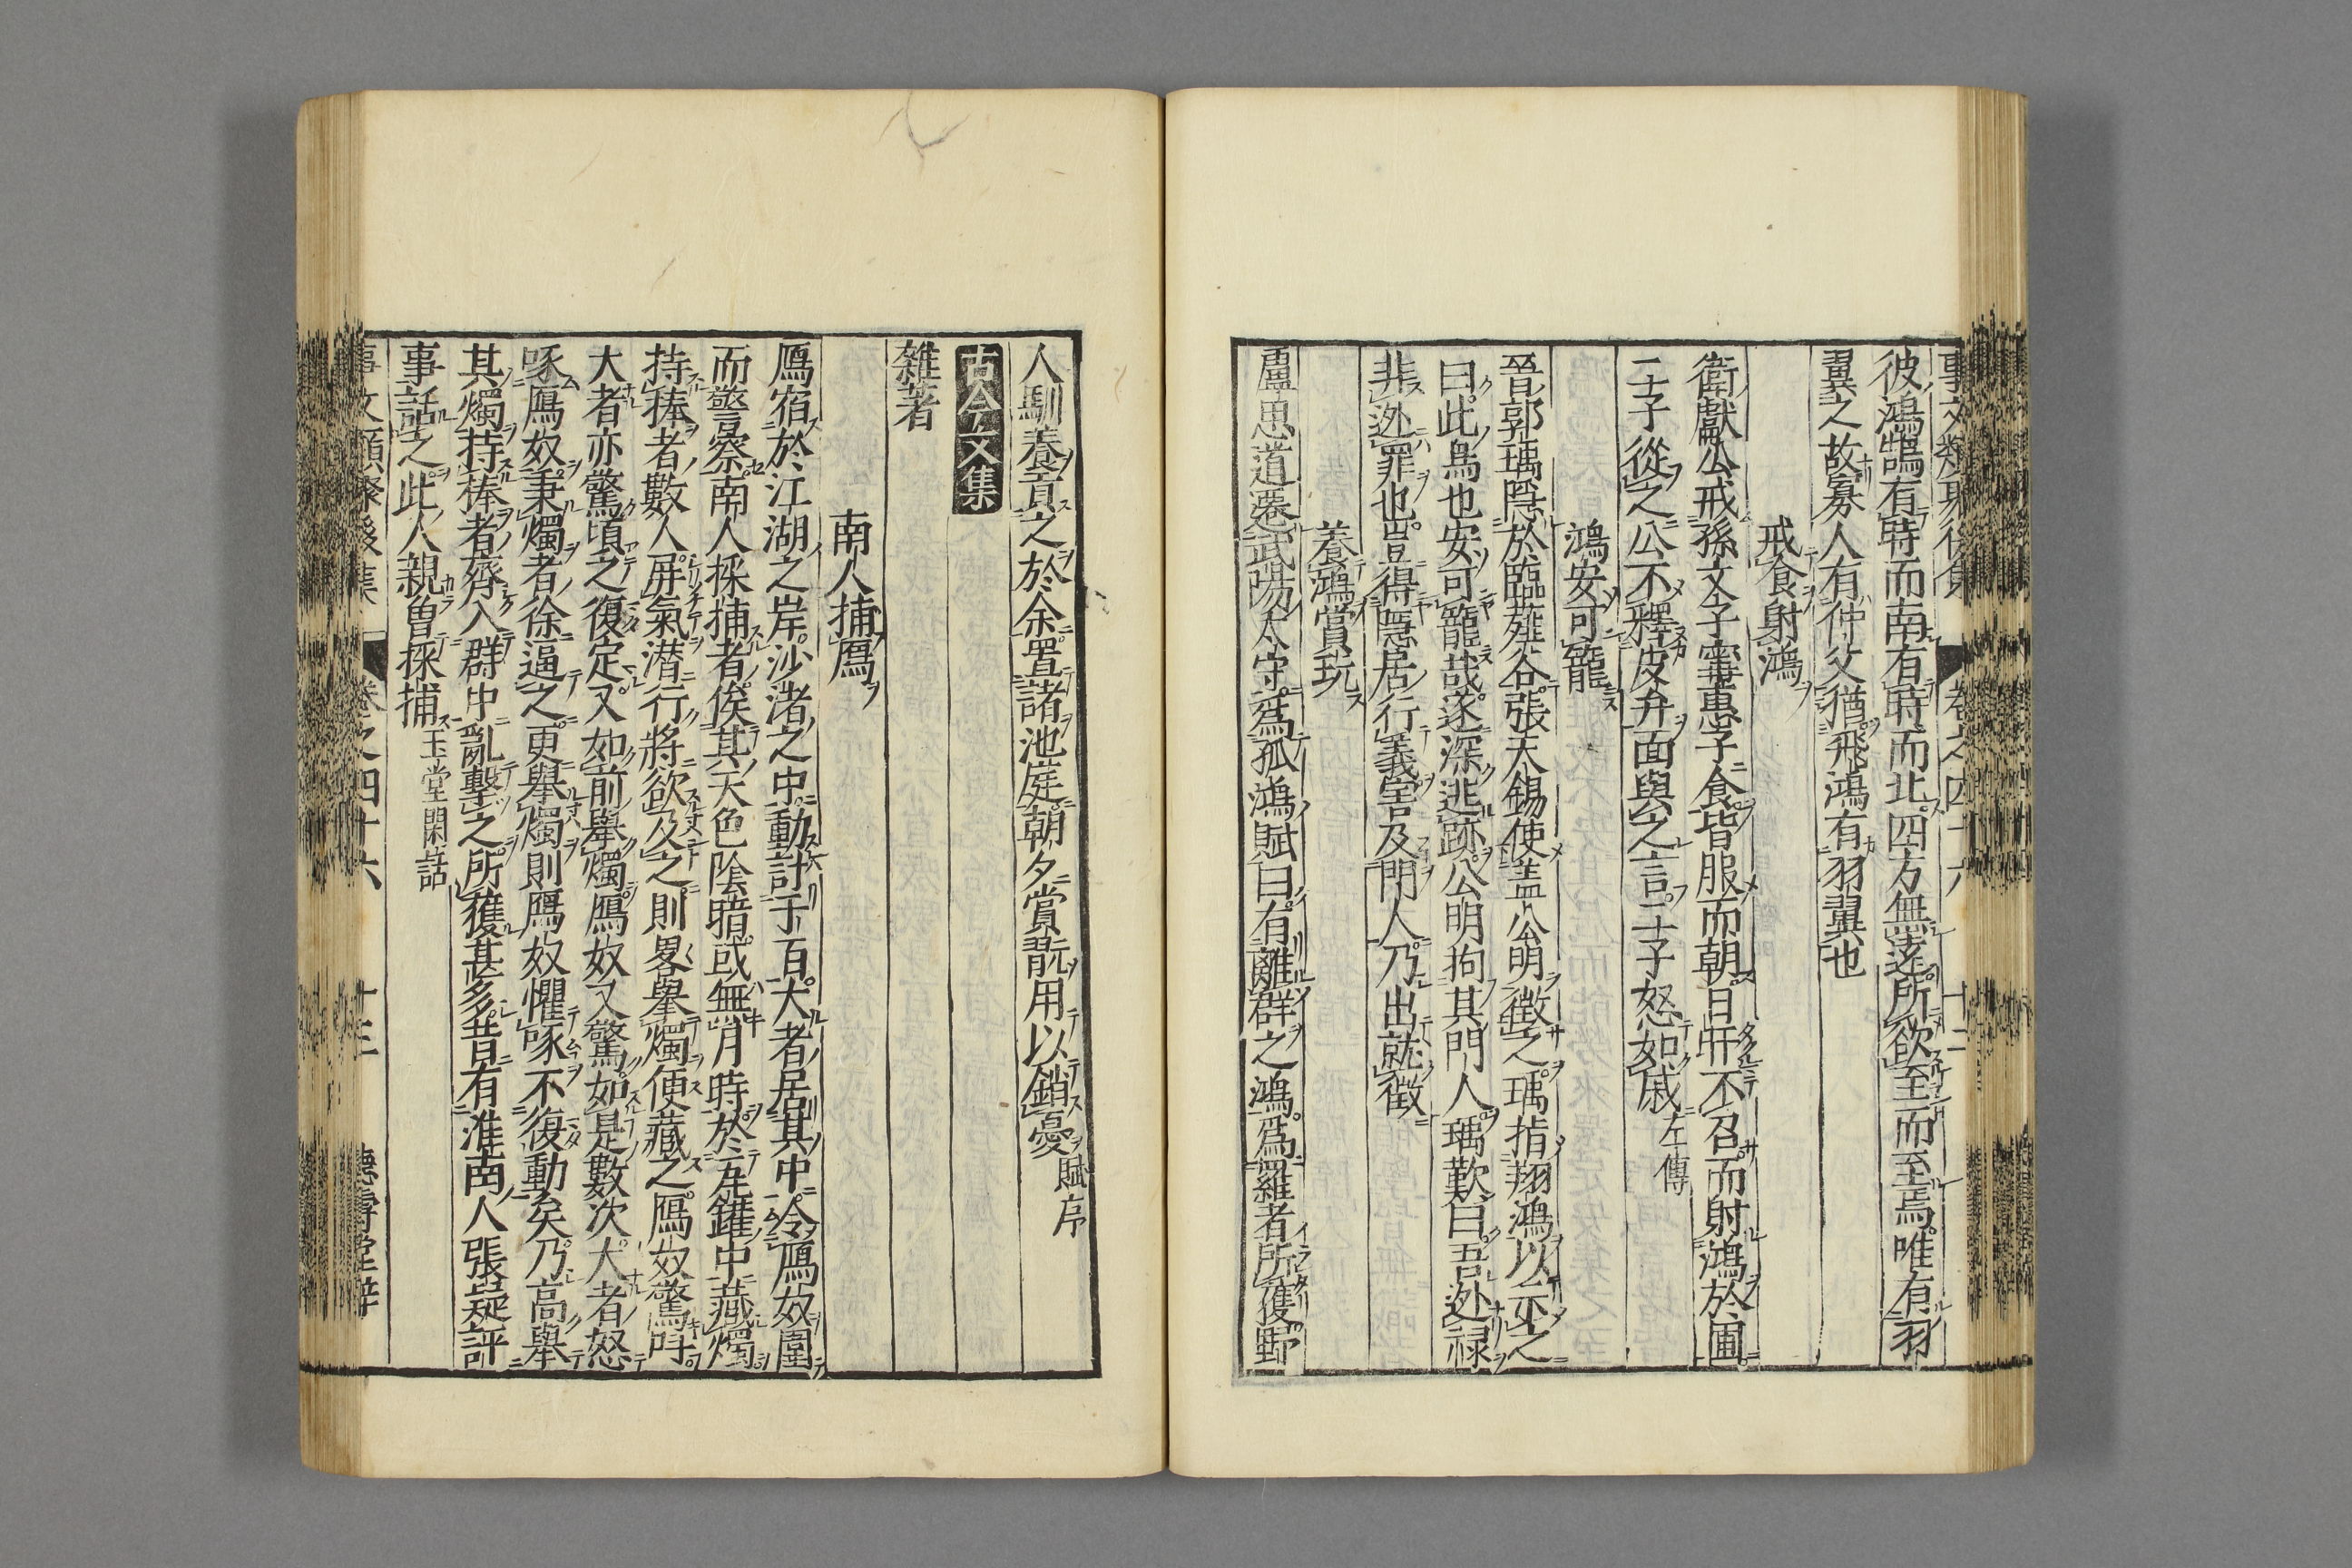 彼鴻鵠有時而南有時而北四方無遠所欲至而至焉唯有羽
翼之故寡人有仲父猶飛鴻有羽翼也
戒食射鴻
衛獻公戒孫文子甯惠子食皆服而朝日旰不召而射鴻於圃
二子從之公不釋皮弁而與之言二子怒如戚 左傳
鴻安可籠
晉郭瑀隱於臨薤谷張天錫使盖公明徵之瑀指翔鴻以示之
曰此鳥也安可籠哉遂深逃跡公明拘其門人瑀歎曰吾迯禄
非迯罪也豈得隱居行義害及門人乃出就徵
養鴻賞玩
盧思道遷武陽太守爲孤鴻賦曰有離群之鴻爲羅者所獲野
人馴養貢之於余置諸池庭朝夕賞翫用以銷憂 賦序
古今文集
雜著
南人捕鴈
鴈宿於江湖之岸沙渚之中動計千百大者居其中令鴈奴圍
而警察南人採捕者俟其天色陰暗或無月時於瓦罐中藏燭
持棒者數人屏氣潜行將欲及之則畧舉燭便藏之鴈奴驚呌
大者亦驚頃之復定又如前舉燭鴈奴又驚如是數次大者怒
啄鴈奴秉燭者徐逼之更舉燭則鴈奴懼啄不復動矣乃高舉
其燭持棒者齊入群中亂擊之所獲甚多昔有淮南人張凝評
事話之此人親曽採捕 玉堂閑話